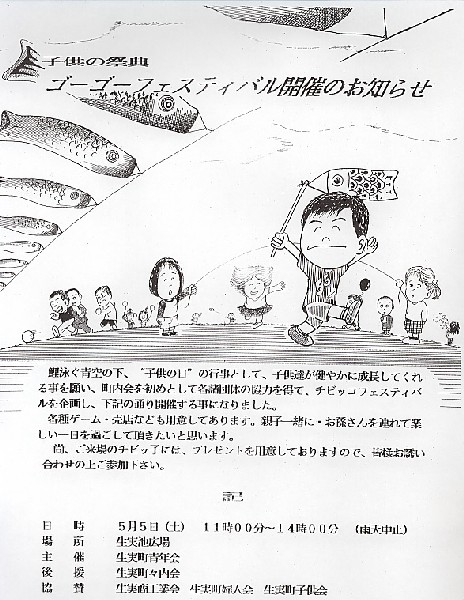 子供の祭典
ゴーゴーフェスティバル開催のお知らせ
鯉泳ぐ青空の下、"子供の日"の行事として、子供達が健やかに成長してくれ
る事を願い、町内会を初めとして各諸団体の協力を得て、チビッコフェスティバ
ルを企画し、下記の通り開催する事になりました。
各種ゲーム・売店なども用意してあります。親子一緒に・お孫さんを連れて楽
しい一日を過ごして頂きたいと思います。
尚、ご来場のチビッ子には、プレゼントを用意しておりますので、皆様お誘い
合わせの上ご参加下さい。
記
日 時 5月5日(土) 11時00分~14時00分 (雨天中止)
場 所 生実池広場
主 催 生実町青年会
後 援 生実町々内会
協 賛 生実商工業会 生実町婦人会 生実町子供会